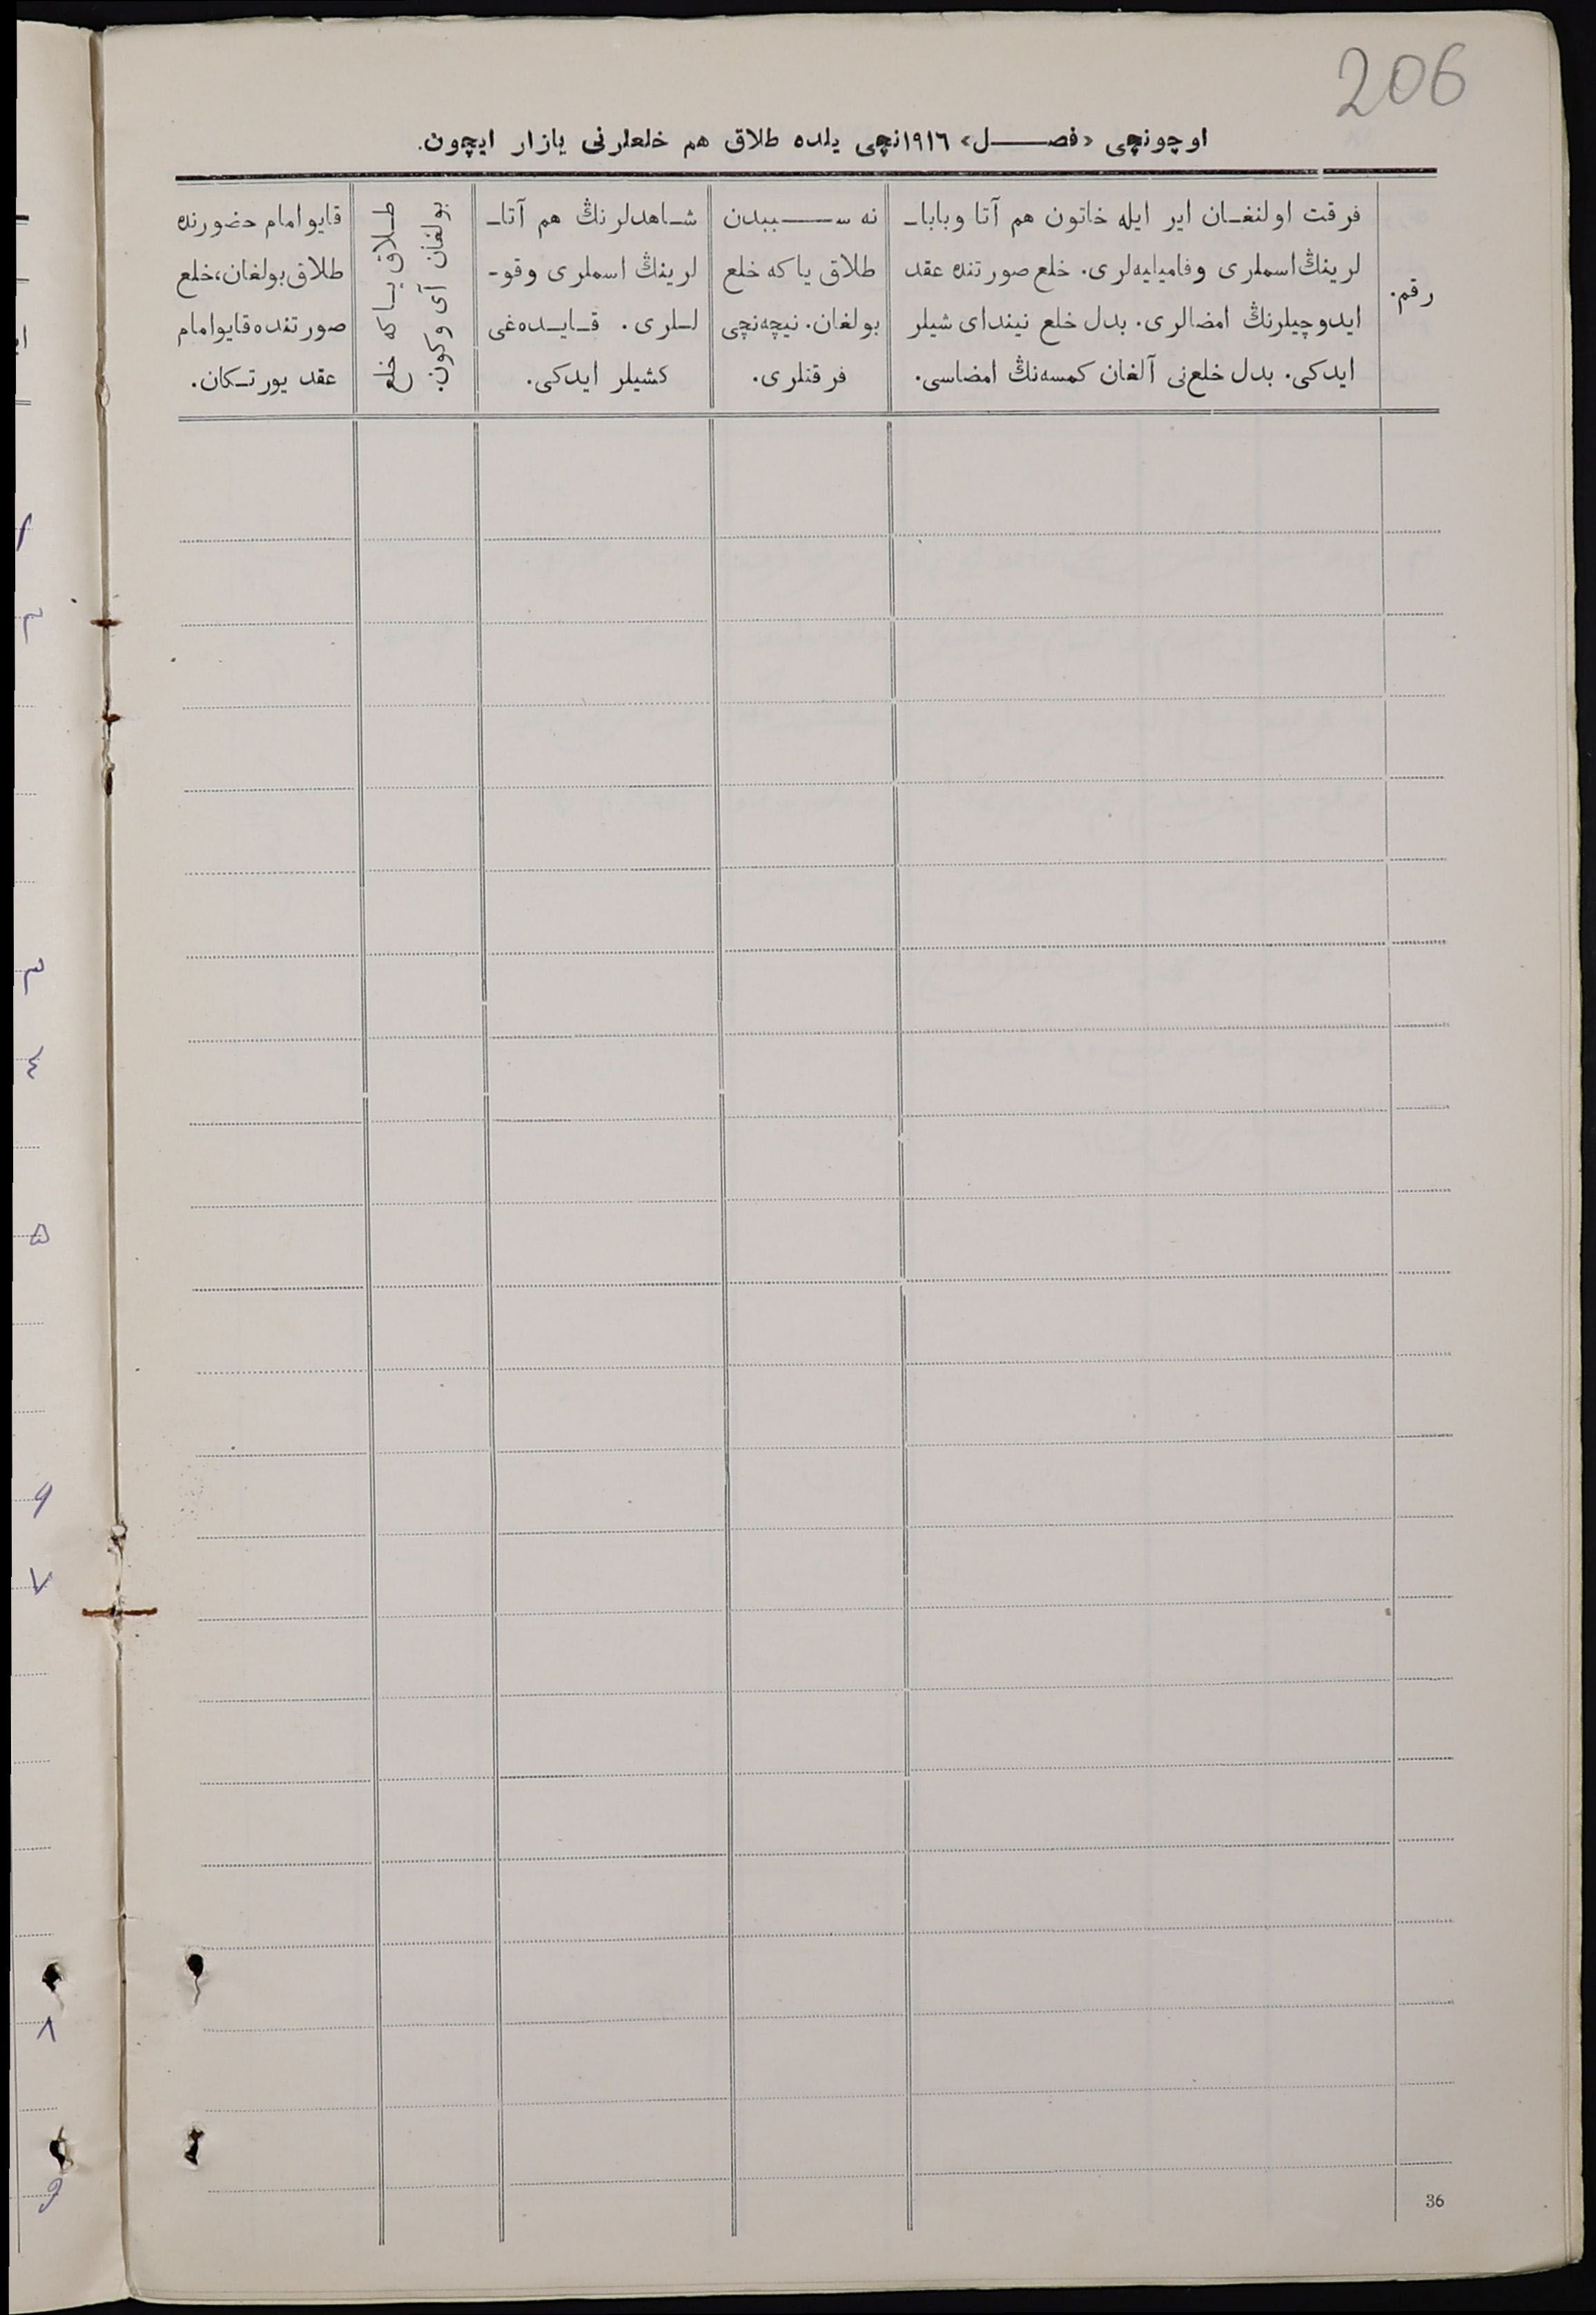 206
اوچونچی «فصـــل» ١٩١٦نچی یلده طلاق هم خلعلرنی یازار ایچون.
رقم.
فرقت اولنغـان ایر ایله خاتون هم آتا وباباـ
لرینڭ اسملری وفامیلیه‌لری. خلع صورتنده عقد
ایدوچیلرنڭ امضالری. بدل خلع نیندای شیلر
ایدکی. بدل خلع‌نی آلغان کمسه‌نڭ امضاسی.
نه ســـببدن
طلاق یا که خلع
بولغان. نیچه‌نچی
فرقتلری.
شـاهدلرنڭ هم آتاـ
لرینڭ اسملری وقوـ
لـلری. قـایـده‌غی
کشیلر ایدکی.
طـلاق یـا که خلع
بولغان آی وکون.
قایو امام حضورنده
طلاق بولغان، خلع
صورتنده قایو امام
عقد یورتـکان.
٣
٣
٤
٥
٦
٧
٨
٩
36